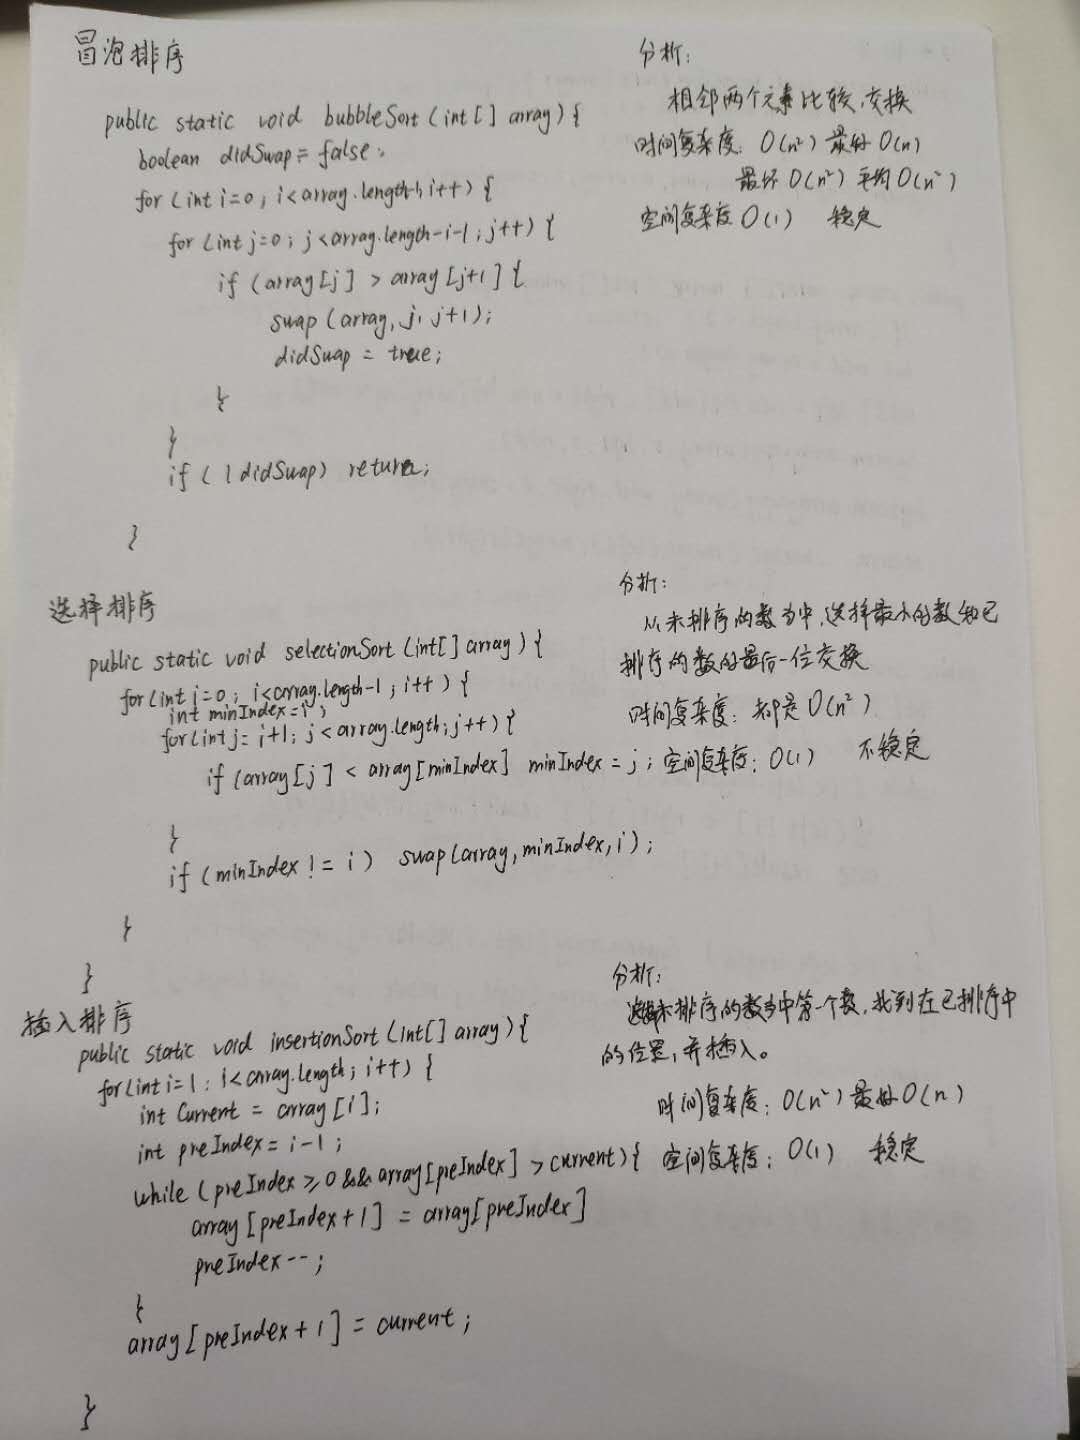 冒泡排序
public static void bubbleSort (int[] array) {
boolean didSwap = false;
for (int i=0; i<array.length-1; i++) {
for (int j=0; j<array.length-i-1; j++) {
if (array[j] > array[j+1] {
swap (array, j, j+1);
didSwap = true;
}
}
if (!didSwap) return;
}
分析:
相邻两个元素比较,交换
时间复杂度: O(n²) 最好 O(n)
最坏 O(n²) 平均 O(n²)
空间复杂度 O(1) 稳定
选择排序
public static void selectionSort (int[] array) {
for (int i=0; i<array.length-1; i++) {
int minIndex=i;
for (int j=i+1; j<array.length; j++) {
if (array[j] < array[minIndex] minIndex = j;
}
if (minIndex != i) swap(array, minIndex, i);
}
}
分析:
从未排序的数当中,选择最小的数和已
排序的数的最后一位交换
时间复杂度: 都是 O(n²)
空间复杂度: O(1) 不稳定
插入排序
public static void insertionSort (int[] array) {
for (int i=1; i<array.length; i++) {
int Current = array[i];
int preIndex = i-1;
while (preIndex ≥ 0 && array[preIndex] > current) {
array[preIndex+1] = array[preIndex]
preIndex--;
}
array[preIndex+1] = current;
}
分析:
未排序的数当中第一个数,找到在已排序中
的位置,并插入。
时间复杂度: O(n²) 最好 O(n)
空间复杂度: O(1) 稳定